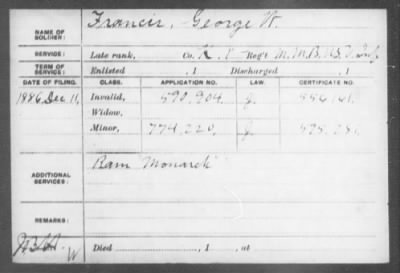 NAME OF SOLDIER: Francis, George W.
SERVICE: Late rank, Co. K, 1 Reg't M.M.B., U.S.V. Inf.
TERM OF SERVICE: Enlisted , 1 Discharged , 1
DATE OF FILING. CLASS. APPLICATION NO. LAW. CERTIFICATE NO.
1886 Dec. 11, Invalid, 590,904 g.
Widow,
Minor, 774,220, g.
ADDITIONAL SERVICES: Ram "Monarch"
REMARKS:
Died , 1 , at